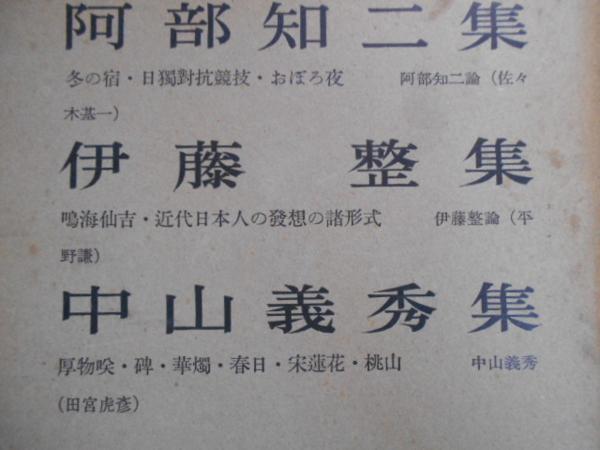 阿部知二集
冬の宿・日獨對抗競技・おぼろ夜 阿部知二論(佐々
木基一)
伊藤 整集
鳴海仙吉・近代日本人の發想の諸形式 伊藤整論(平
野謙)
中山義秀集
厚物咲・碑・華燭・春日・宋蓮花・桃山 中山義秀
(田宮虎彥)